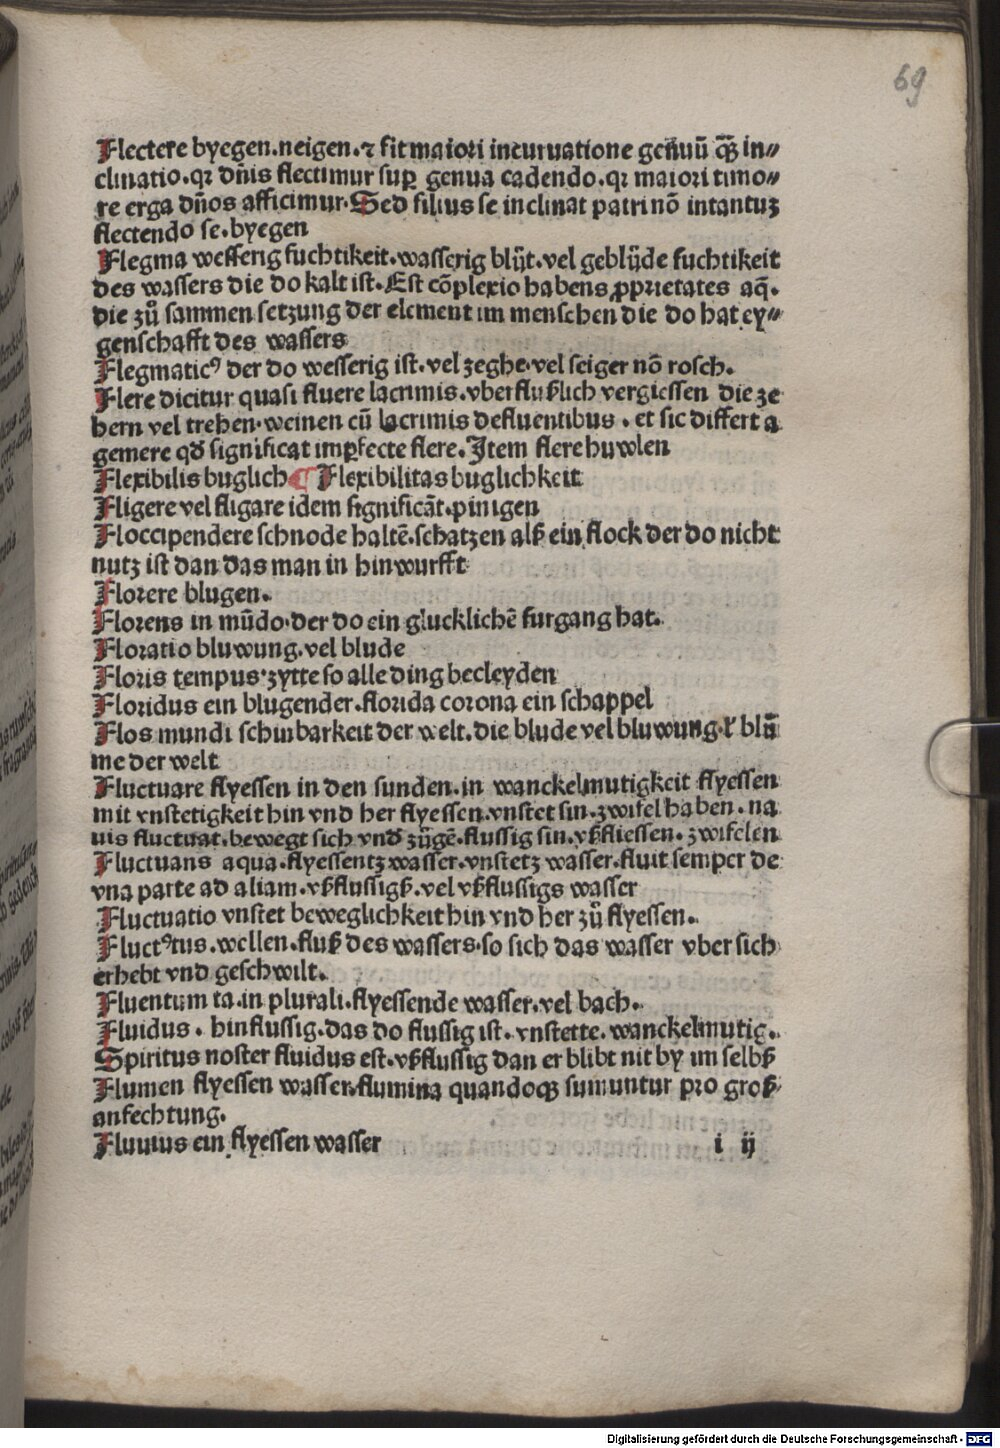 69
Flectere byegen.neigen.⁊ fit maiori incuruatione genuū qȝ in⸗
clinatio.qꝛ dn̄is flectimur suꝑ genua cadendo.qꝛ maioꝛi timo⸗
re erga dn̄os afficimur.Sed filius se inclinat patri nō intantuȝ
flectendo se.byegen
Flegma wesserig fuchtikeit.wasserig blůt.vel geblůde fuchtikeit
des wassers die do kalt ist.Est cōplexio habens ꝓprietates aq̄.
die zů sammen setzung der element im menschen die do hat ey⸗
genschafft des wassers
Flegmaticꝰ der do wesserig ist.vel zeghe.vel seiger nō rosch.
Flere dicitur quasi fluere lacrimis.vberflußlich vergiessen die ze
hern vel trehen.weinen cū lacrimis defluentibus . et sic differt a
gemere qđ significat imꝑfecte flere.Item flere huwlen
Flexibilis buglich ¶ Flexibilitas buglichkeit
Fligere vel fligare idem significāt.pinigen
Floccipendere schnode haltē.schatzen alß ein flock der do nicht
nutz ist dan das man in hin wurfft
Florere blugen.
Florens in mūdo.der do ein glucklichē furgang hat.
Floratio bluwung.vel blude
Floris tempus.zytte so alle ding becleyden
Floridus ein blugender.florida corona ein schappel
Flos mundi schinbarkeit der welt.die blude vel bluwung.lˀ blū
me der welt
Fluctuare flyessen in den sunden.in wanckelmutigkeit flyessen
mit vnstetigkeit hin vnd her flyessen.vnstet sin.zwifel haben.na
uis fluctuat.bewegt sich vnđ zůgē.flussig sin.vb̄fliessen.zwifelen
Fluctuans aqua.flyessentz wasser.vnstetz wasser.fluit semper de
vna parte ad aliam.vb̄flussigß.vel vb̄flussigs wasser
Fluctuatio vnstet beweglichkeit hin vnd her zů flyessen.
Fluctꝰtus.wellen.fluß des wassers.so sich das wasser vber sich
erhebt vnd geschwilt.
Fluentum ta.in plurali.flyessende wasser.vel bach.
Fluidus . hinflussig.das do flussig ist.vnstette.wanckelmutig.
Spiritus noster fluidus est.vb̄flussig dan er blibt nit by im selbß
Flumen flyessen wasser.flumina quandoqȝ sumuntur pro groß
anfechtung.
Fluuius ein flyessen wasser i ij
Digitalisierung gefördert durch die Deutsche Forschungsgemeinschaft - DFG